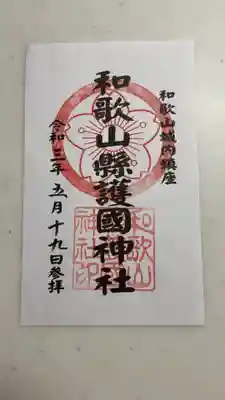 和歌山城内鎮座
和歌山縣護國神社
令和三年五月十九日参拝
和歌山
縣護國
神社印